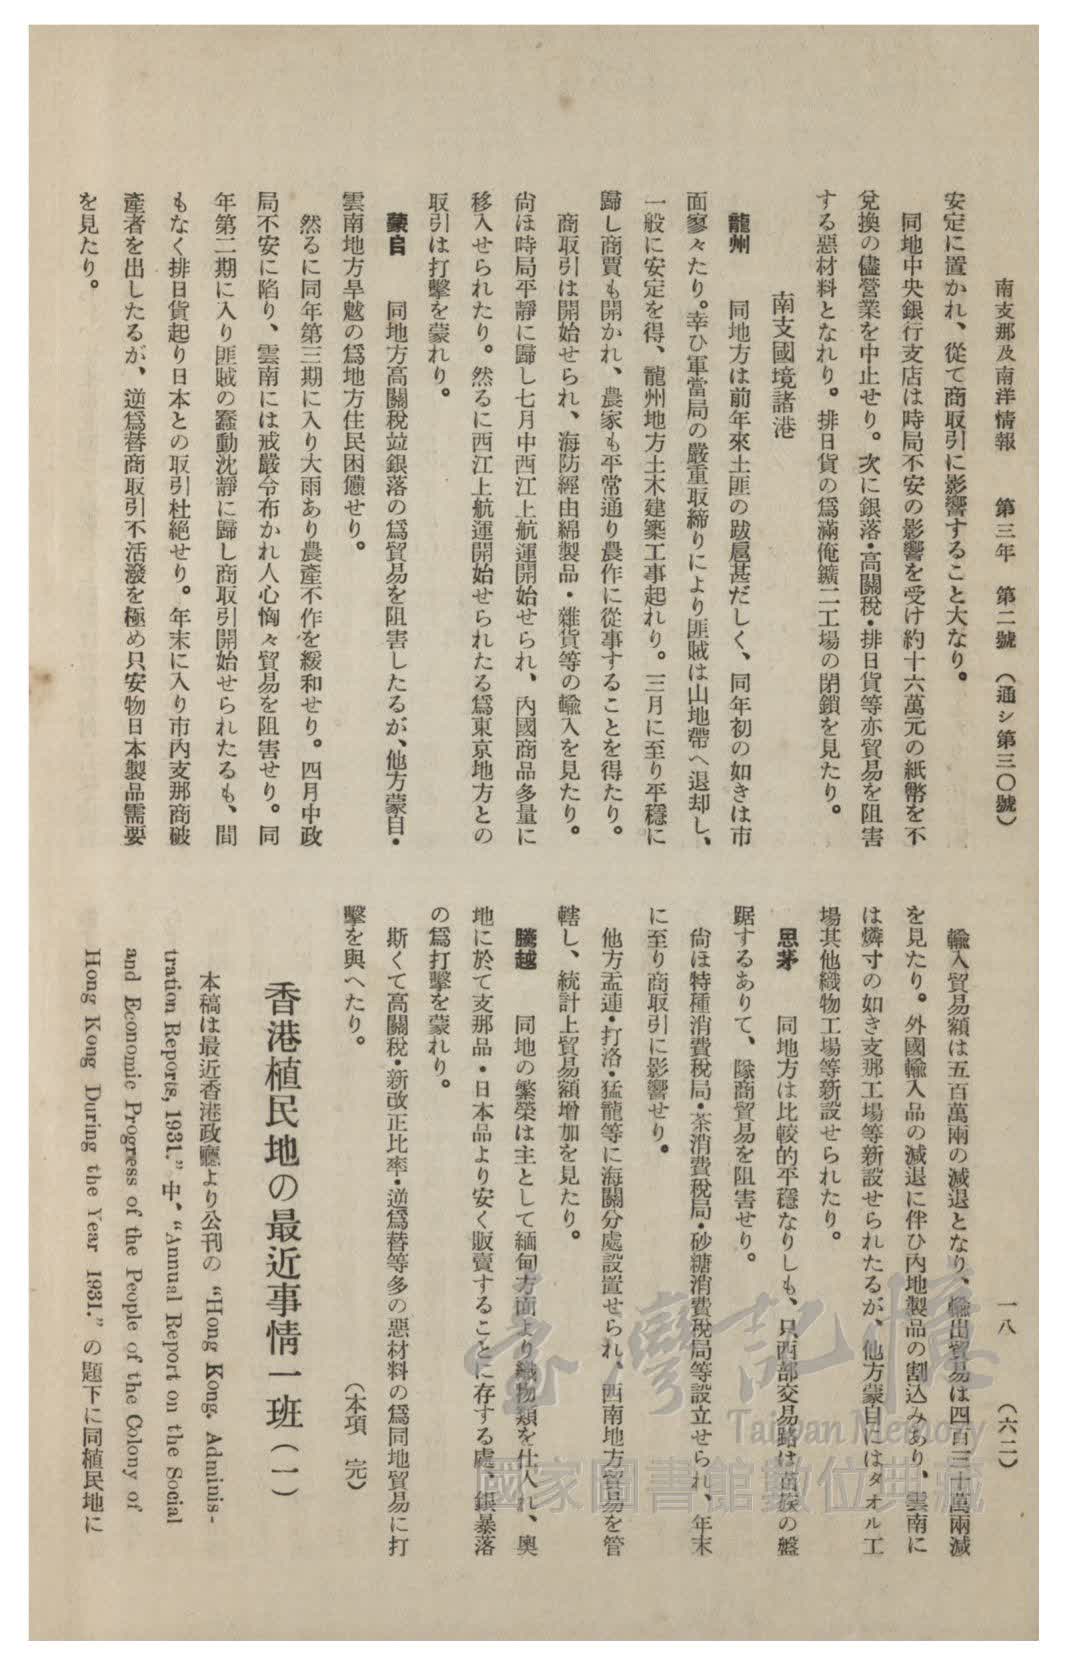 南支那及南洋情報　第三年　第二號　(通シ第三〇號)
一八　(六二)
安定に置かれ、從て商取引に影響すること大なり。
同地中央銀行支店は時局不安の影響を受け約十六萬元の紙幣を不
兌換の儘營業を中止せり。次に銀落・高關稅・排日貨等亦貿易を阻害
する惡材料となれり。排日貨の爲滿俺鑛二工場の閉鎖を見たり。
南支國境諸港
龍州　同地方は前年來土匪の跋扈甚だしく、同年初の如きは市
面寥々たり。幸ひ軍當局の嚴重取締りにより匪賊は山地帶へ退却し、
一般に安定を得、龍州地方土木建築工事起れり。三月に至り平穩に
歸し商賈も開かれ、農家も平常通り農作に從事することを得たり。
商取引は開始せられ、海防經由綿製品・雜貨等の輸入を見たり。
尙ほ時局平靜に歸し七月中西江上航運開始せられ、內國商品多量に
移入せられたり。然るに西江上航運開始せられたる爲東京地方との
取引は打擊を蒙れり。
蒙自　同地方高關稅竝銀落の爲貿易を阻害したるが、他方蒙自・
雲南地方旱魃の爲地方住民困憊せり。
然るに同年第三期に入り大雨あり農產不作を緩和せり。四月中政
局不安に陷り、雲南には戒嚴令布かれ人心恟々貿易を阻害せり。同
年第二期に入り匪賊の蠢動沈靜に歸し商取引開始せられたるも、間
もなく排日貨起り日本との取引杜絕せり。年末に入り市內支那商破
產者を出したるが、逆爲替商取引不活潑を極め只安物日本製品需要
を見たり。
輸入貿易額は五百萬兩の減退となり、輸出貿易は四百三十萬兩減
を見たり。外國輸入品の減退に伴ひ內地製品の割込みあり、雲南に
は燐寸の如き支那工場等新設せられたるが、他方蒙自にはタオル工
場其他織物工場等新設せられたり。
思茅　同地方は比較的平穩なりしも、只西部交易路は苗族の盤
踞するありて、隊商貿易を阻害せり。
尙ほ特種消費稅局・茶消費稅局・砂糖消費稅局等設立せられ、年末
に至り商取引に影響せり。
他方孟連・打洛・猛龍等に海關分處設置せられ、西南地方貿易を管
轄し、統計上貿易額增加を見たり。
騰越　同地の繁榮は主として緬甸方面より織物類を仕入れ、奧
地に於て支那品・日本品より安く販賣することに存する處、銀暴落
の爲打擊を蒙れり。
斯くて高關稅・新改正比率・逆爲替等多の惡材料の爲同地貿易に打
擊を與へたり。　(本項　完)
香港植民地の最近事情一班(一)
本稿は最近香港政廳より公刊の “Hong Kong. Adminis-
tration Reports, 1931.” 中、“Annual Report on the Social
and Economic Progress of the People of the Colony of
Hong Kong During the Year 1931.” の題下に同植民地に
臺灣記憶
Taiwan Memory
國家圖書館數位典藏